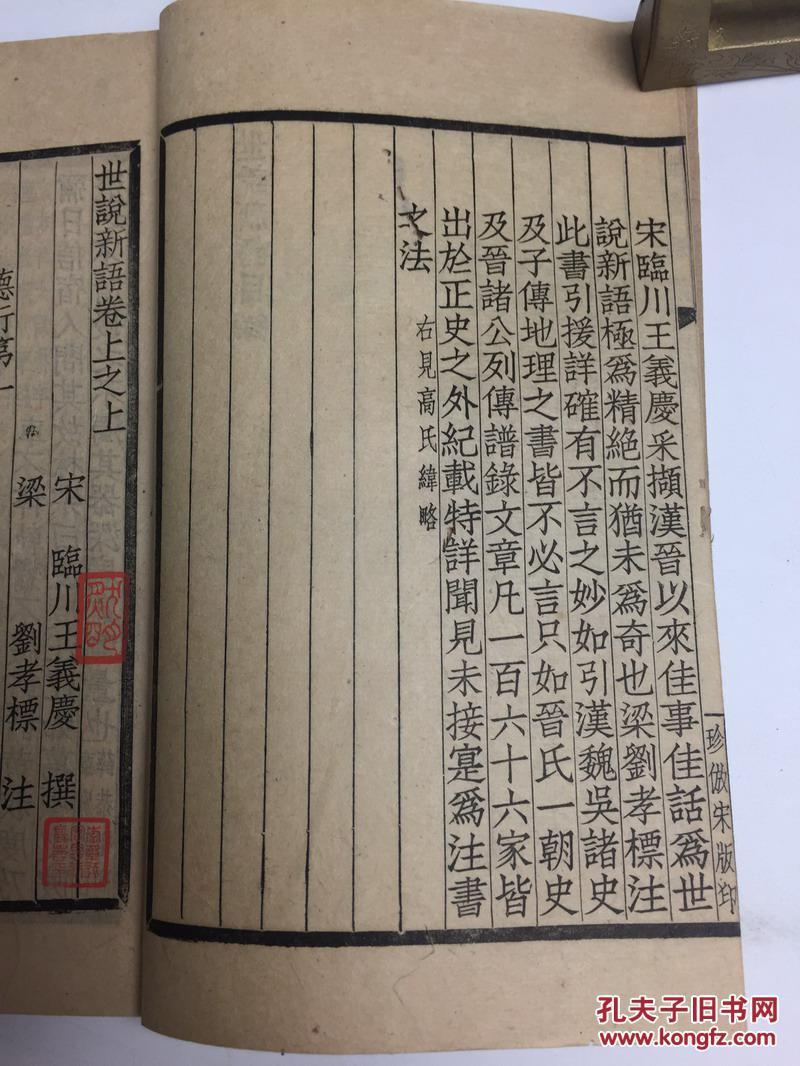 宋臨川王義慶采擷漢晉以來佳事佳話爲世
說新語極爲精絕而猶未爲奇也梁劉孝標注
此書引援詳確有不言之妙如引漢魏吳諸史
及子傳地理之書皆不必言只如晉氏一朝史
及晉諸公列傳譜錄文章凡一百六十六家皆
出於正史之外紀載特詳聞見未接寔爲注書
之法
右見高氏緯略
珍倣宋版印
世說新語卷上之上
宋 臨川王義慶 撰
梁 劉孝標 注
德行第一
孔夫子旧书网
www.kongfz.com